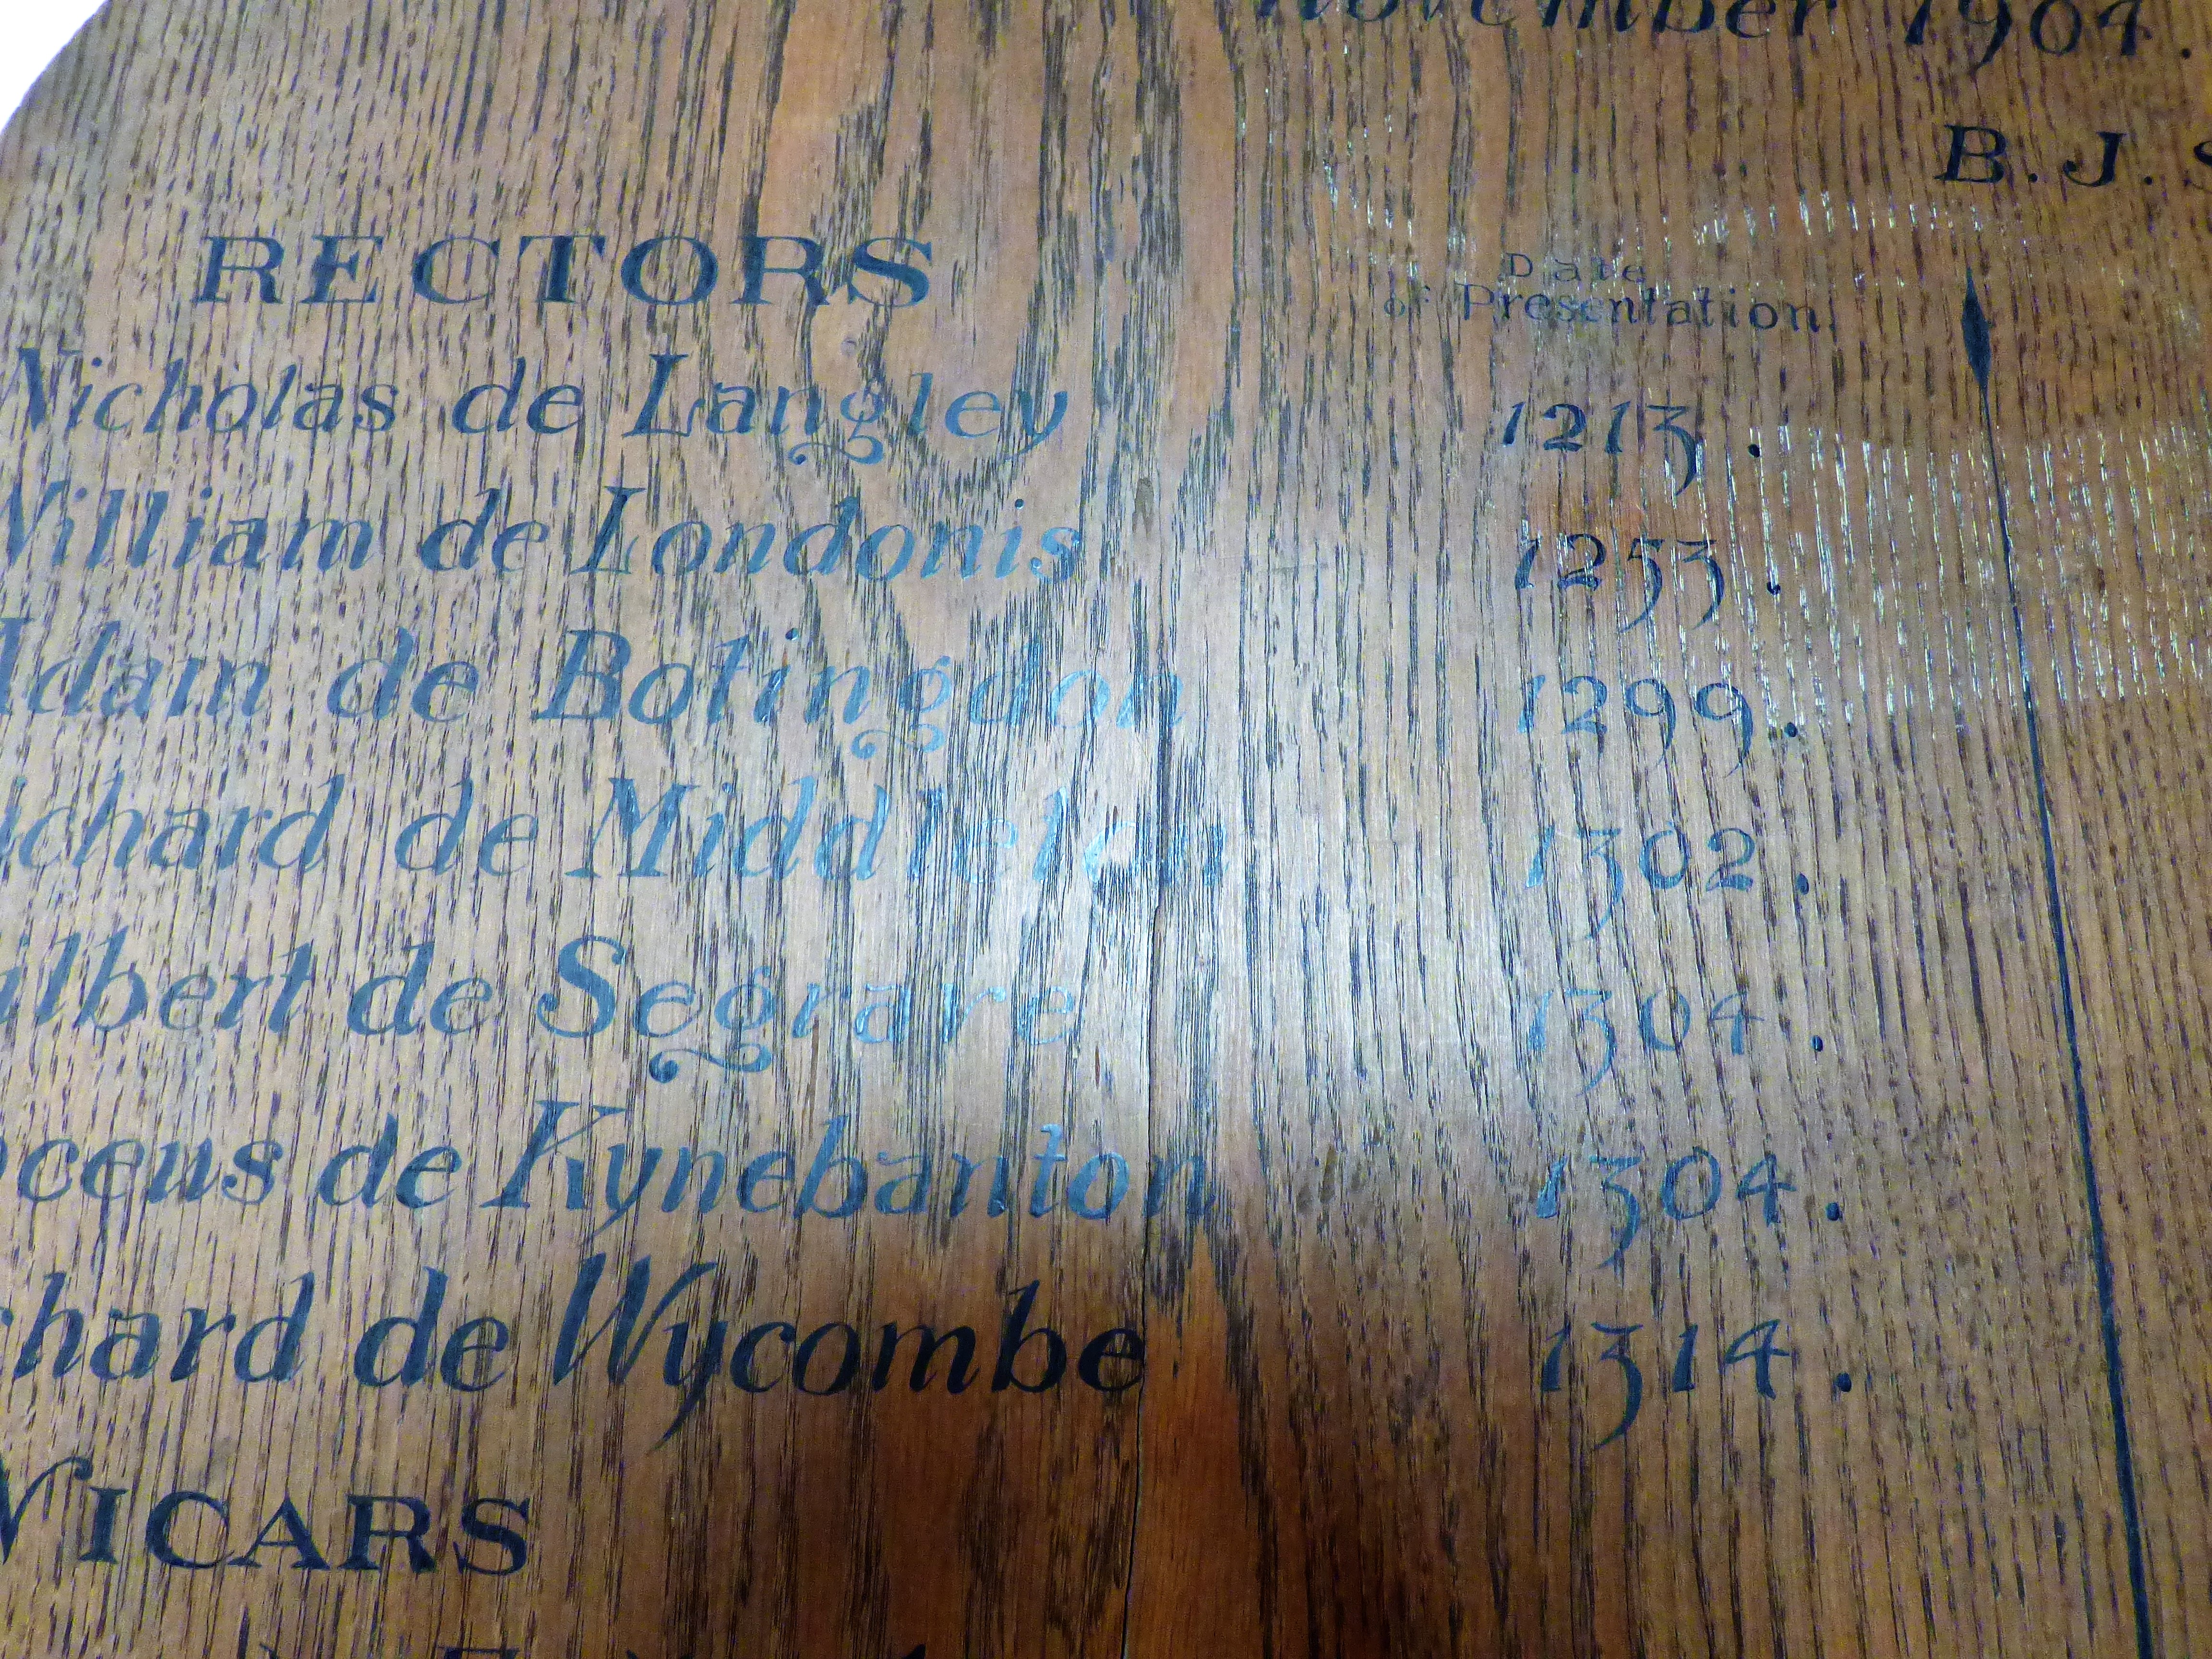 November 1904.
B. J. S
RECTORS
Date
of Presentation.
Nicholas de Langley 1213.
William de Londonis 1253.
Adam de Botingdon 1299.
ichard de Middleton 1302.
ilbert de Segrave 1304.
oceus de Kynebanton 1304.
chard de Wycombe 1314.
VICARS